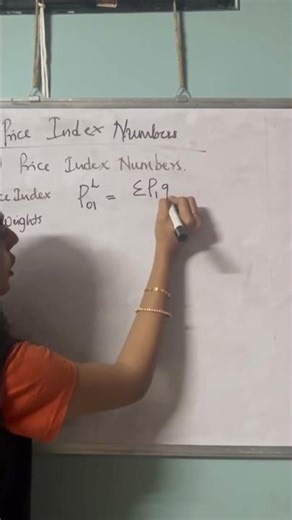 Price Index Numbers
Price Index Numbers.
Index P₀₁ᴸ = ΣP₁q
Weights